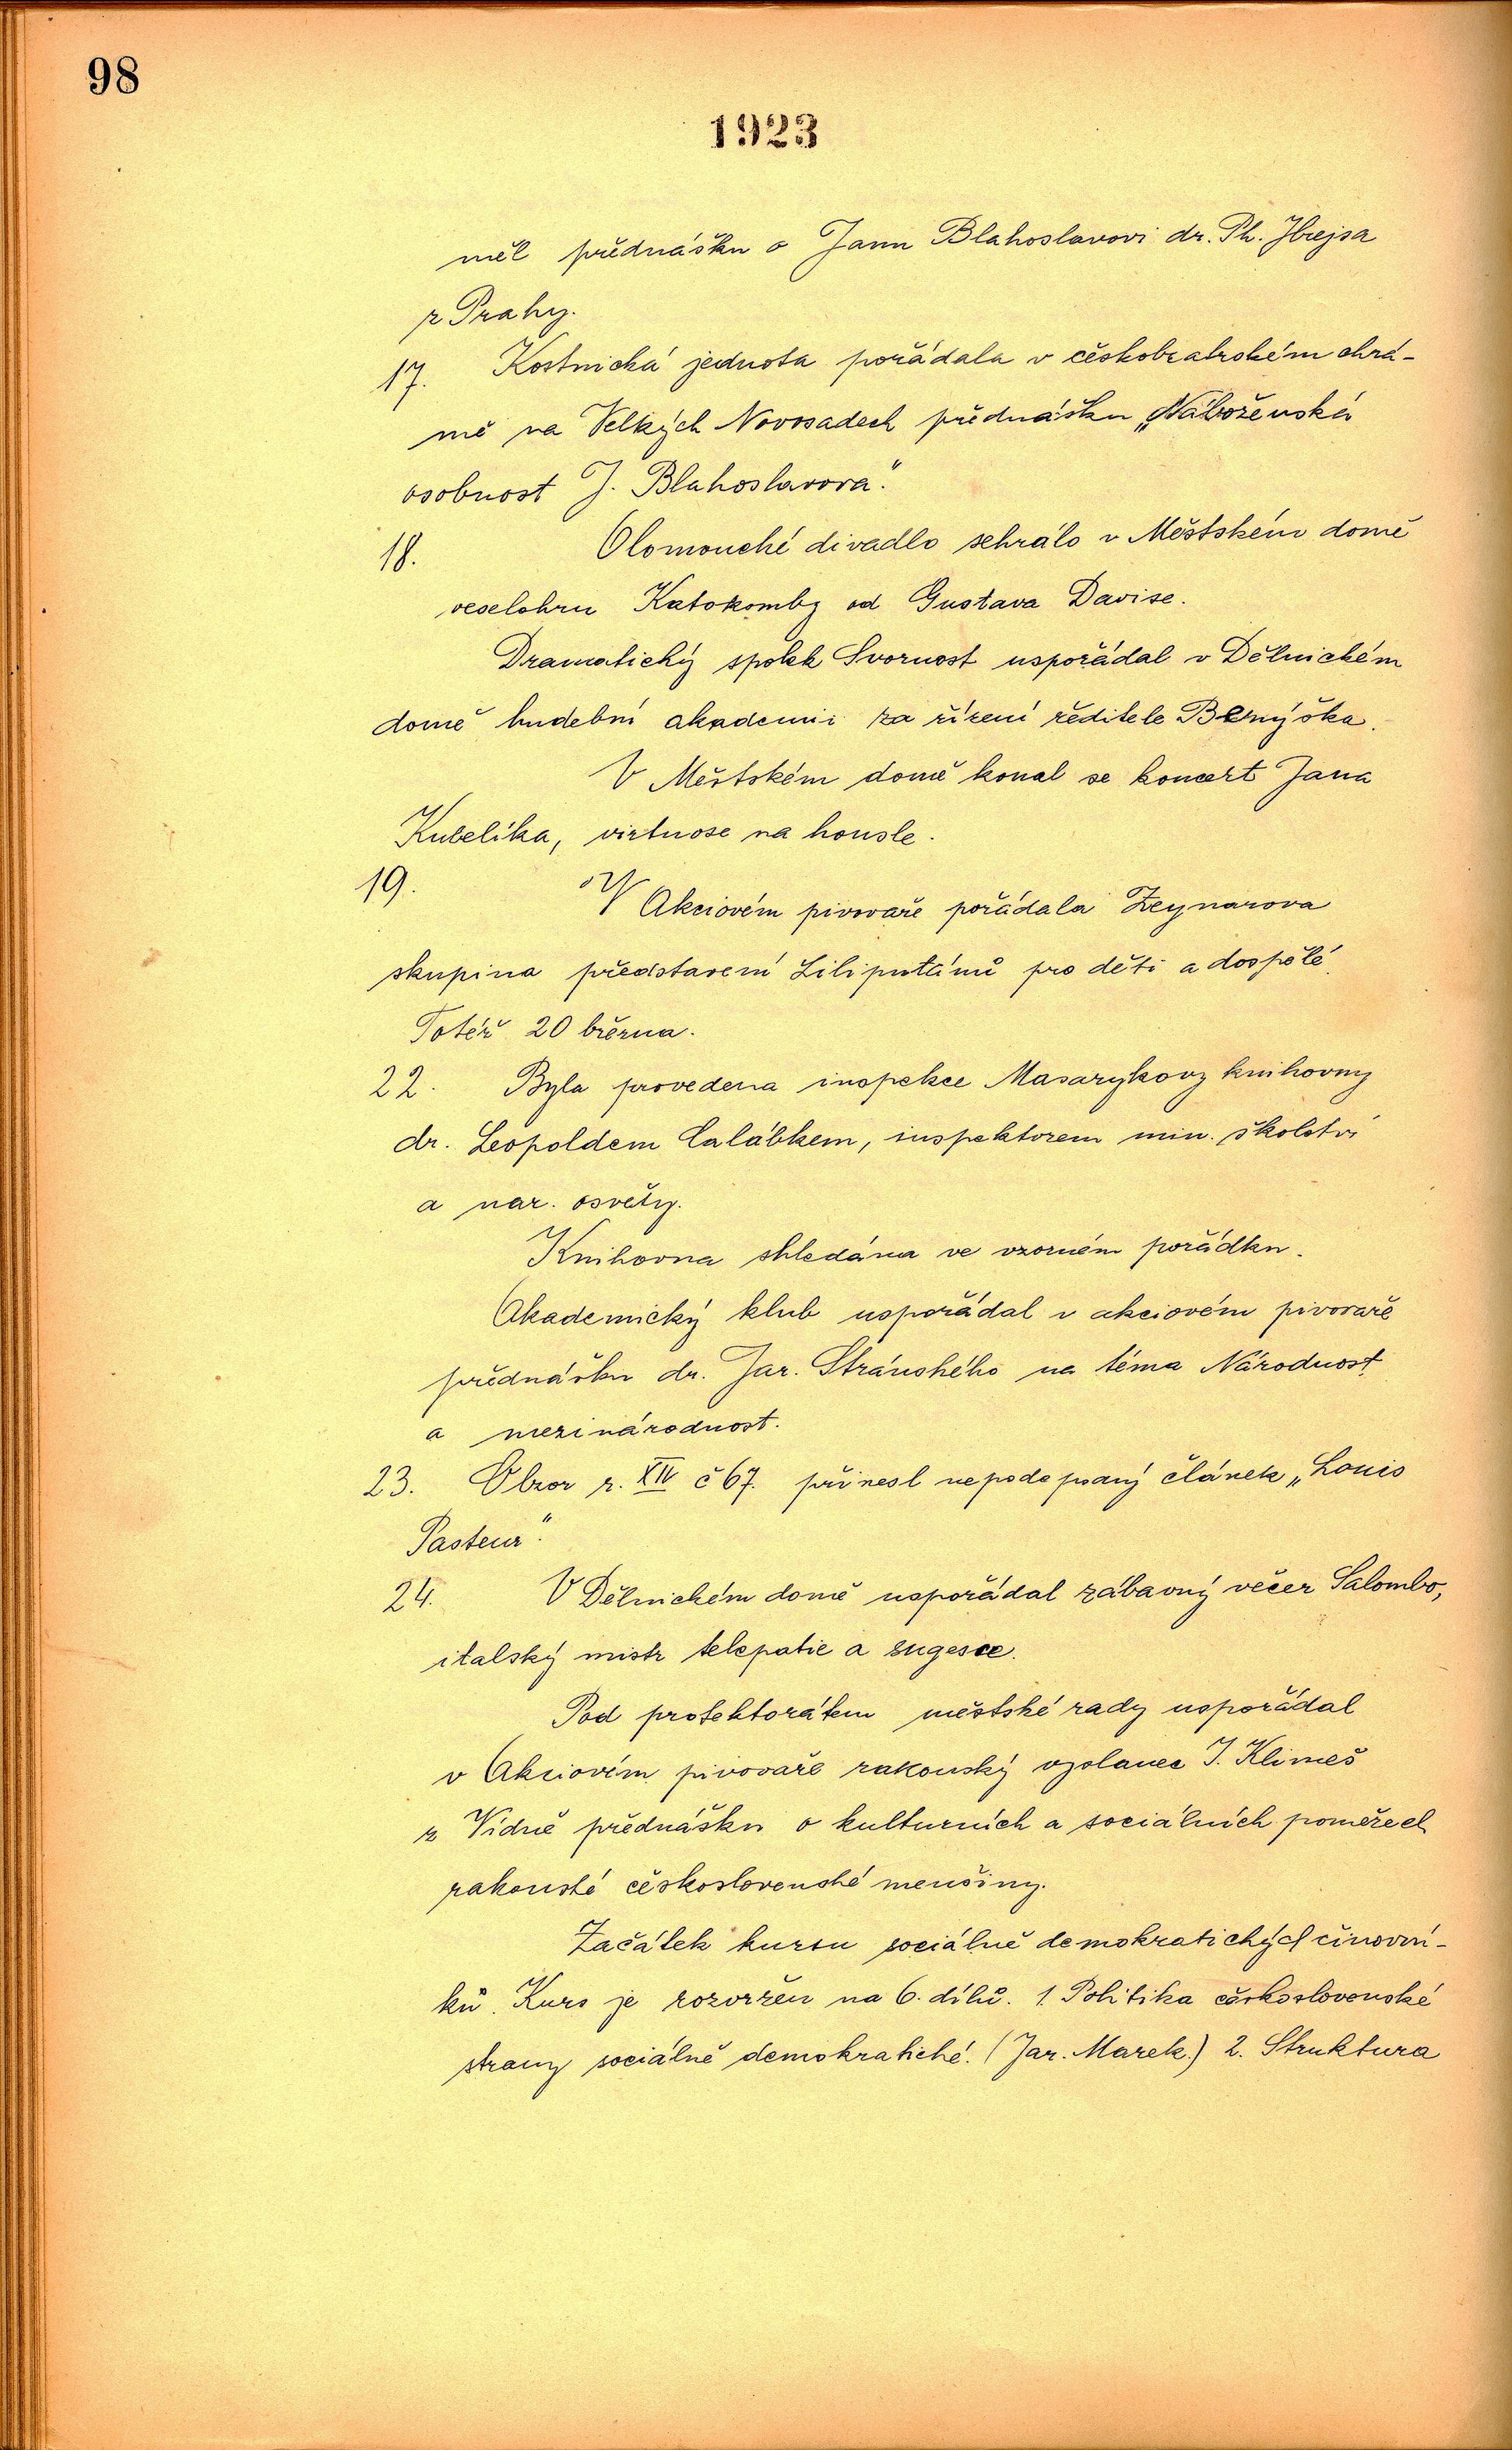 98
1923
měl přednášku o Janu Blahoslavovi dr. Ph. Hrejsa
z Prahy.
17. Kostnická jednota pořádala v českobratrském chrá-
mě na Velkých Novosadech přednášku „Náboženská
osobnost J. Blahoslavova."
18. Olomoucké divadlo sehrálo v Městském domě
veselohru Katakomby od Gustava Davise.
Dramatický spolek Svornost uspořádal v Dělnickém
domě hudební akademii za řízení ředitele Berný́ška.
V Městském domě konal se koncert Jana
Kubelíka, virtuose na housle.
19. V Akciovém pivovaře pořádala Zeynarova
skupina představení Liliputánů pro děti a dospělé.
Totéž 20 března.
22. Byla provedena inspekce Masarykovy knihovny
dr. Leopoldem Calábkem, inspektorem min. školství
a nar. osvěty.
Knihovna shledána ve vzorném pořádku.
Akademický klub uspořádal v akciovém pivovaře
přednášku dr. Jar. Stránského na téma Národnost
a mezinárodnost.
23. Obzor r. XIV č 67. přinesl nepodepsaný článek „Louis
Pasteur".
24. V Dělnickém domě uspořádal zábavný večer Salombo,
italský mistr telepatie a sugesce.
Pod protektorátem městské rady uspořádal
v Akciovém pivovaře rakouský vyslanec J. Klimeš
z Vídně přednášku o kulturních a sociálních poměrech
rakouské československé menšiny.
Začátek kursu sociálně demokratických činovní-
ků. Kurs je rozvržen na 6. dílů. 1. Politika československé
strany sociálně demokratické. (Jar. Marek.) 2. Struktura